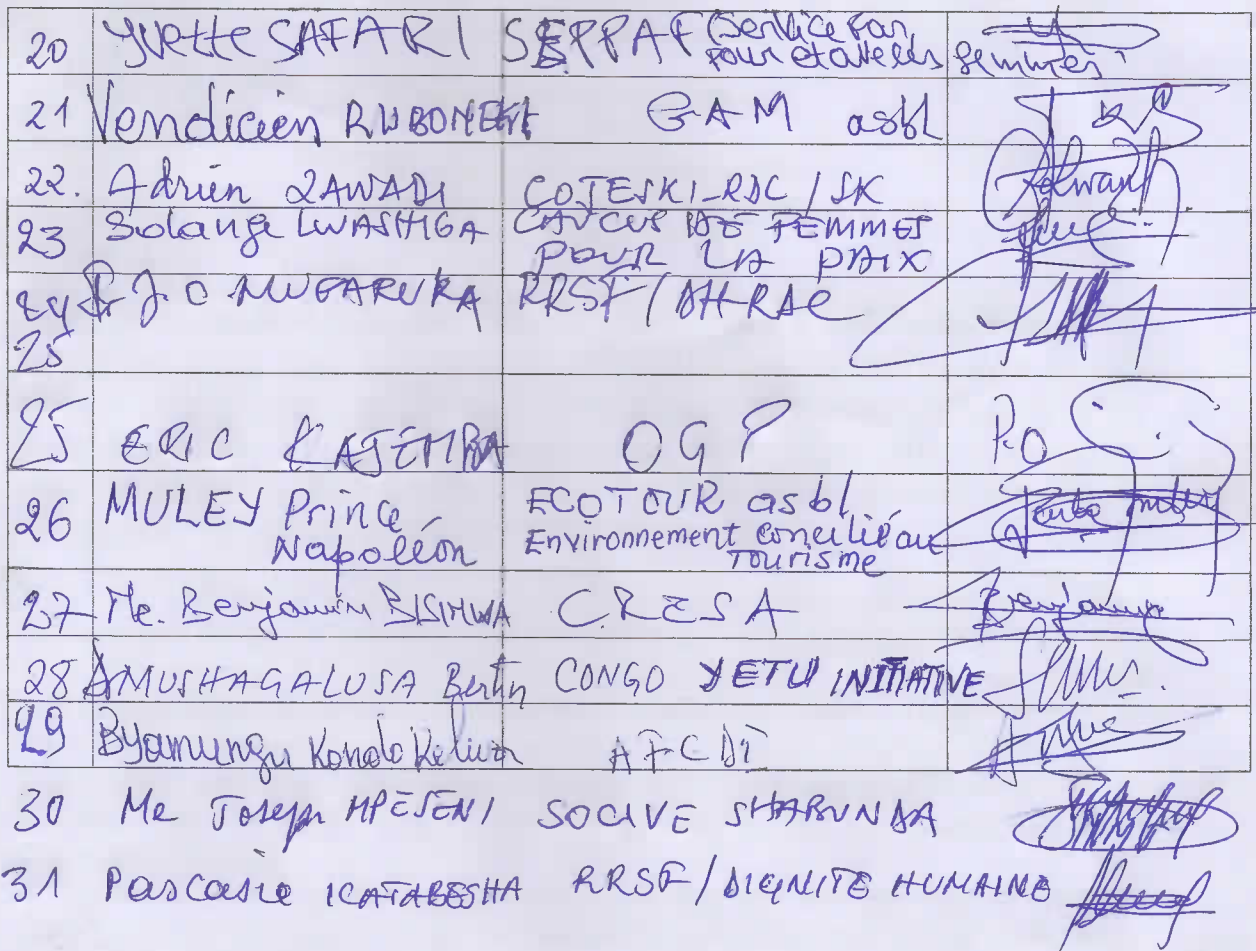 20 Yvette SAFARI SEPPAF (Service Par, pour et avec les femmes
21 Vendicien RUBONEKA GAM asbl
22. Adrien ZAWADI COJESKI-RDC / SK
23 Solange LWASHIGA CAUCUS DE FEMMES
POUR LA PAIX
24 J.C MUGARUKA RRSF/DH-RAC
25
25 ERIC KAJEMBA OGP P.O
26 MULEY Prince ECOTOUR asbl
Napoléon Environnement concilié au
Tourisme
27 Me. Benjamin BISIMWA CRESA Benjamin
28 AMUSHAGALUSA Bertin CONGO YETU INITIATIVE
29 Byamungu Kondo AFCDI
30 Me Joseph MPESENI SOCIVE SHABUNDA
31 Pascasie KATABESHA RRSF/DIGNITE HUMAINE